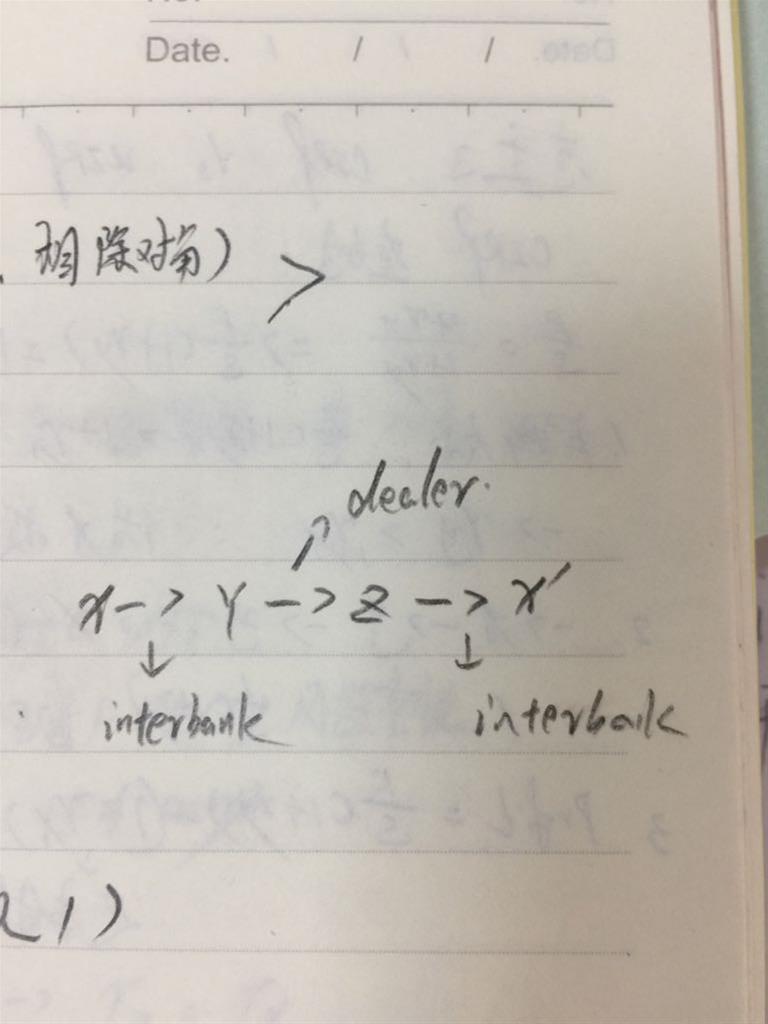 Date. / /
相除对角) >
dealer.
X -> Y -> Z -> X'
↓ ↓
interbank interbank
1)